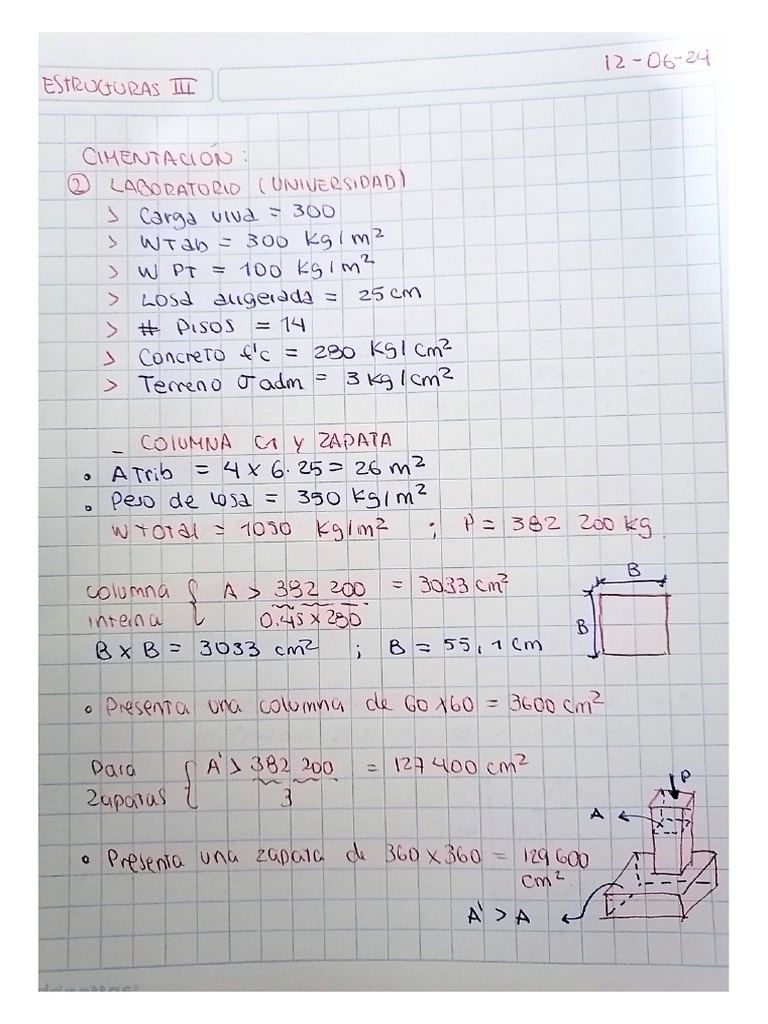 12-06-24
ESTRUCTURAS III
CIMENTACIÓN:
② LABORATORIO (UNIVERSIDAD)
> Carga viva = 300
> WTab = 300 kg/m²
> W PT = 100 kg/m²
> Losa aligerada = 25cm
> # Pisos = 14
> Concreto f'c = 280 kg/cm²
> Terreno σ adm = 3 kg/cm²
_ COLUMNA C1 y ZAPATA
• A Trib = 4 x 6.25 = 26 m²
• Peso de losa = 350 kg/m²
W Total = 1050 kg/m² ; P = 382 200 kg
columna { A > 382 200 = 3033 cm²
interna 0.45 x 280
B x B = 3033 cm² ; B = 55,1 cm
B
B
• Presenta una columna de 60x60 = 3600 cm²
Para { A' > 382 200 = 127400 cm²
Zapatas 3
P
A
• Presenta una zapata de 360x360 = 129600
cm²
A' > A